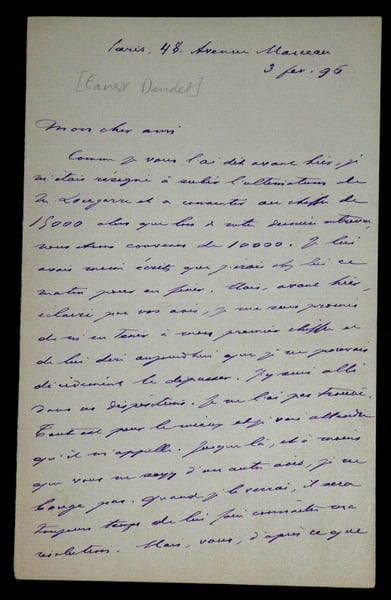 Paris, 48. Avenue Marceau
3 fev. 96
[Ernest Daudet]
Mon cher ami
Comme je vous l'ai dit avant hier, je
m'étais résigné à subir l'ultimatum de
M. et à consentir au chiffre de
15000 alors que lors de notre dernière entrevue,
nous étions convenus de 10000. Je lui
avais même écrit que j'irais chez lui ce
matin pour en finir. Mais, avant hier,
éclairé par vos avis, je me suis promis
de m'en tenir à mon premier chiffre et
de lui dire aujourd'hui que je ne pouvais
décidément le dépasser. J'y suis allé
dans ces dispositions. Je ne l'ai pas trouvé.
Tout est pour le mieux et je vais attendre
qu'il m'appelle. Jusque là, et à moins
que vous ne soyez d'un autre avis, je ne
bouge pas. Quand je le verrai, il sera
toujours temps de lui faire connaître ma
résolution. Mais, vous, d'après ce que